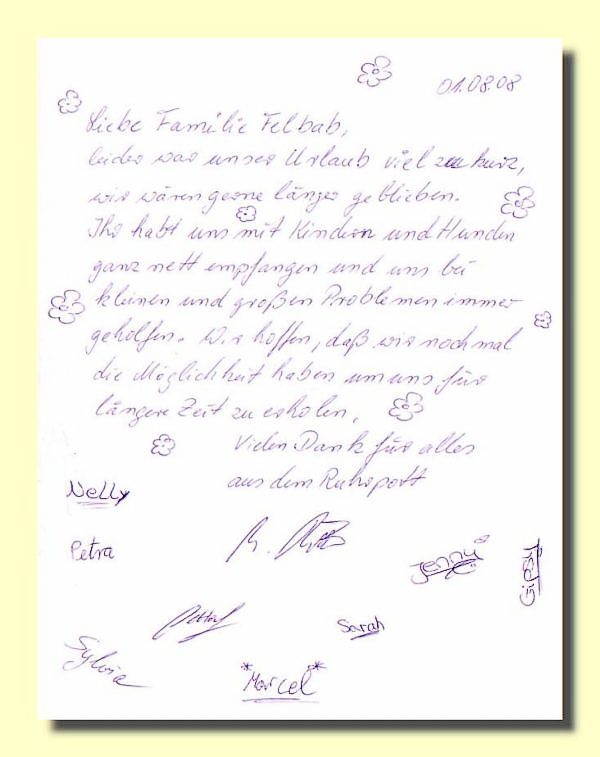 01.08.08
Liebe Familie Felbab,
leider war unser Urlaub viel zu kurz,
wir wären gerne länger geblieben.
Ihr habt uns mit Kindern und Hunden
ganz nett empfangen und uns bei
kleinen und großen Problemen immer
geholfen. Wir hoffen, daß wir nochmal
die Möglichkeit haben um uns für
längere Zeit zu erholen.
Vielen Dank für alles
aus dem Ruhrpott
Nelly
Petra
Jenny
Gipsy
Sarah
Sylvia
*Marcel*